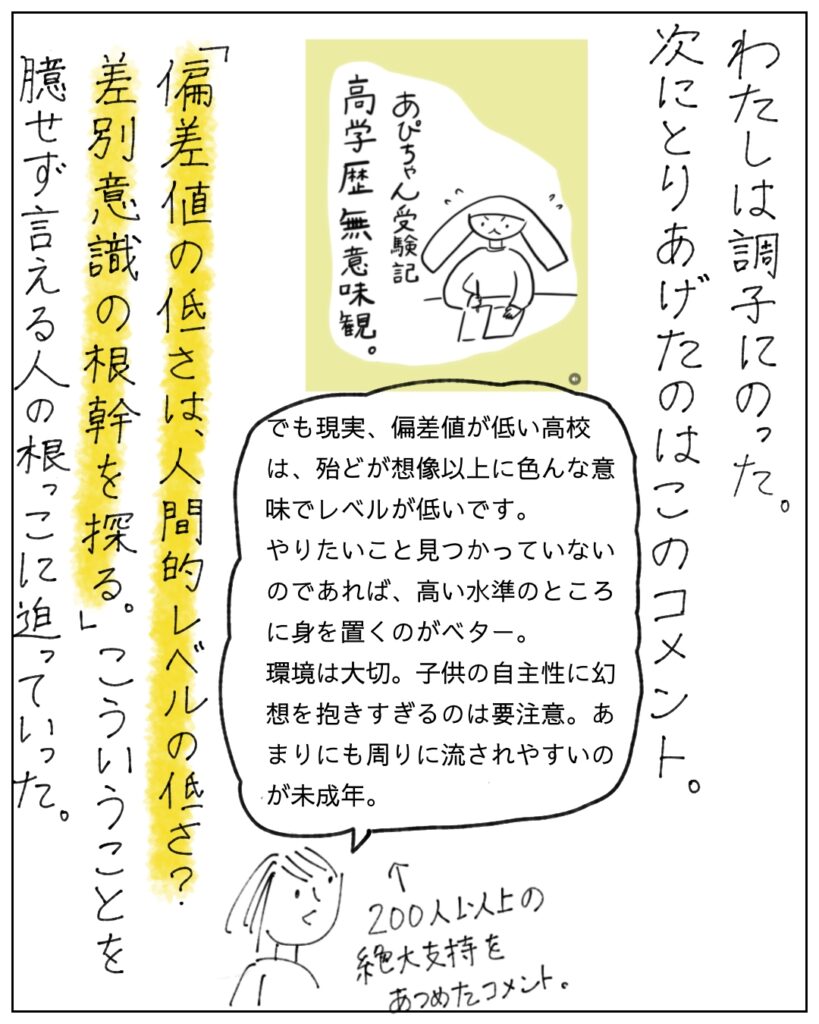 わたしは調子にのった。
次にとりあげたのはこのコメント。
あぴちゃん受験記
高学歴無意味観。
でも現実、偏差値が低い高校
は、殆どが想像以上に色んな意
味でレベルが低いです。
やりたいこと見つかっていない
のであれば、高い水準のところ
に身を置くのがベター。
環境は大切。子供の自主性に幻
想を抱きすぎるのは要注意。あ
まりにも周りに流されやすいの
が未成年。
↑
200人以上の
絶大支持を
あつめたコメント。
「偏差値の低さは、人間的レベルの低さ？
差別意識の根幹を探る。」こういうことを
臆せず言える人の根っこに迫っていった。